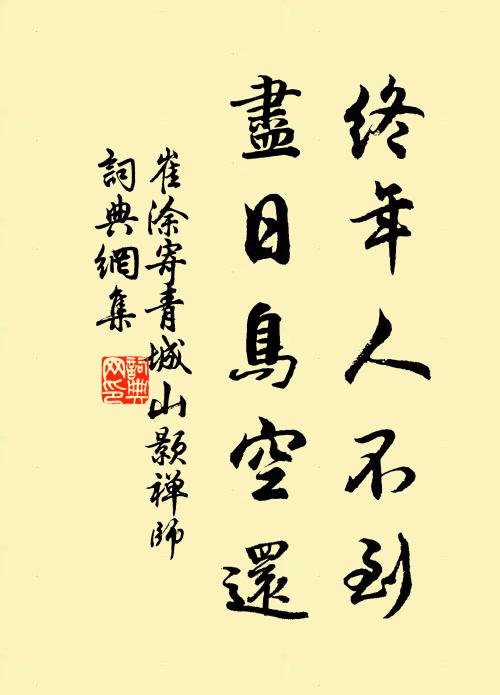 終年人不到
盡日鳥空還
崔涂寄青城山顥禅師
詞典網集
詞典
网印